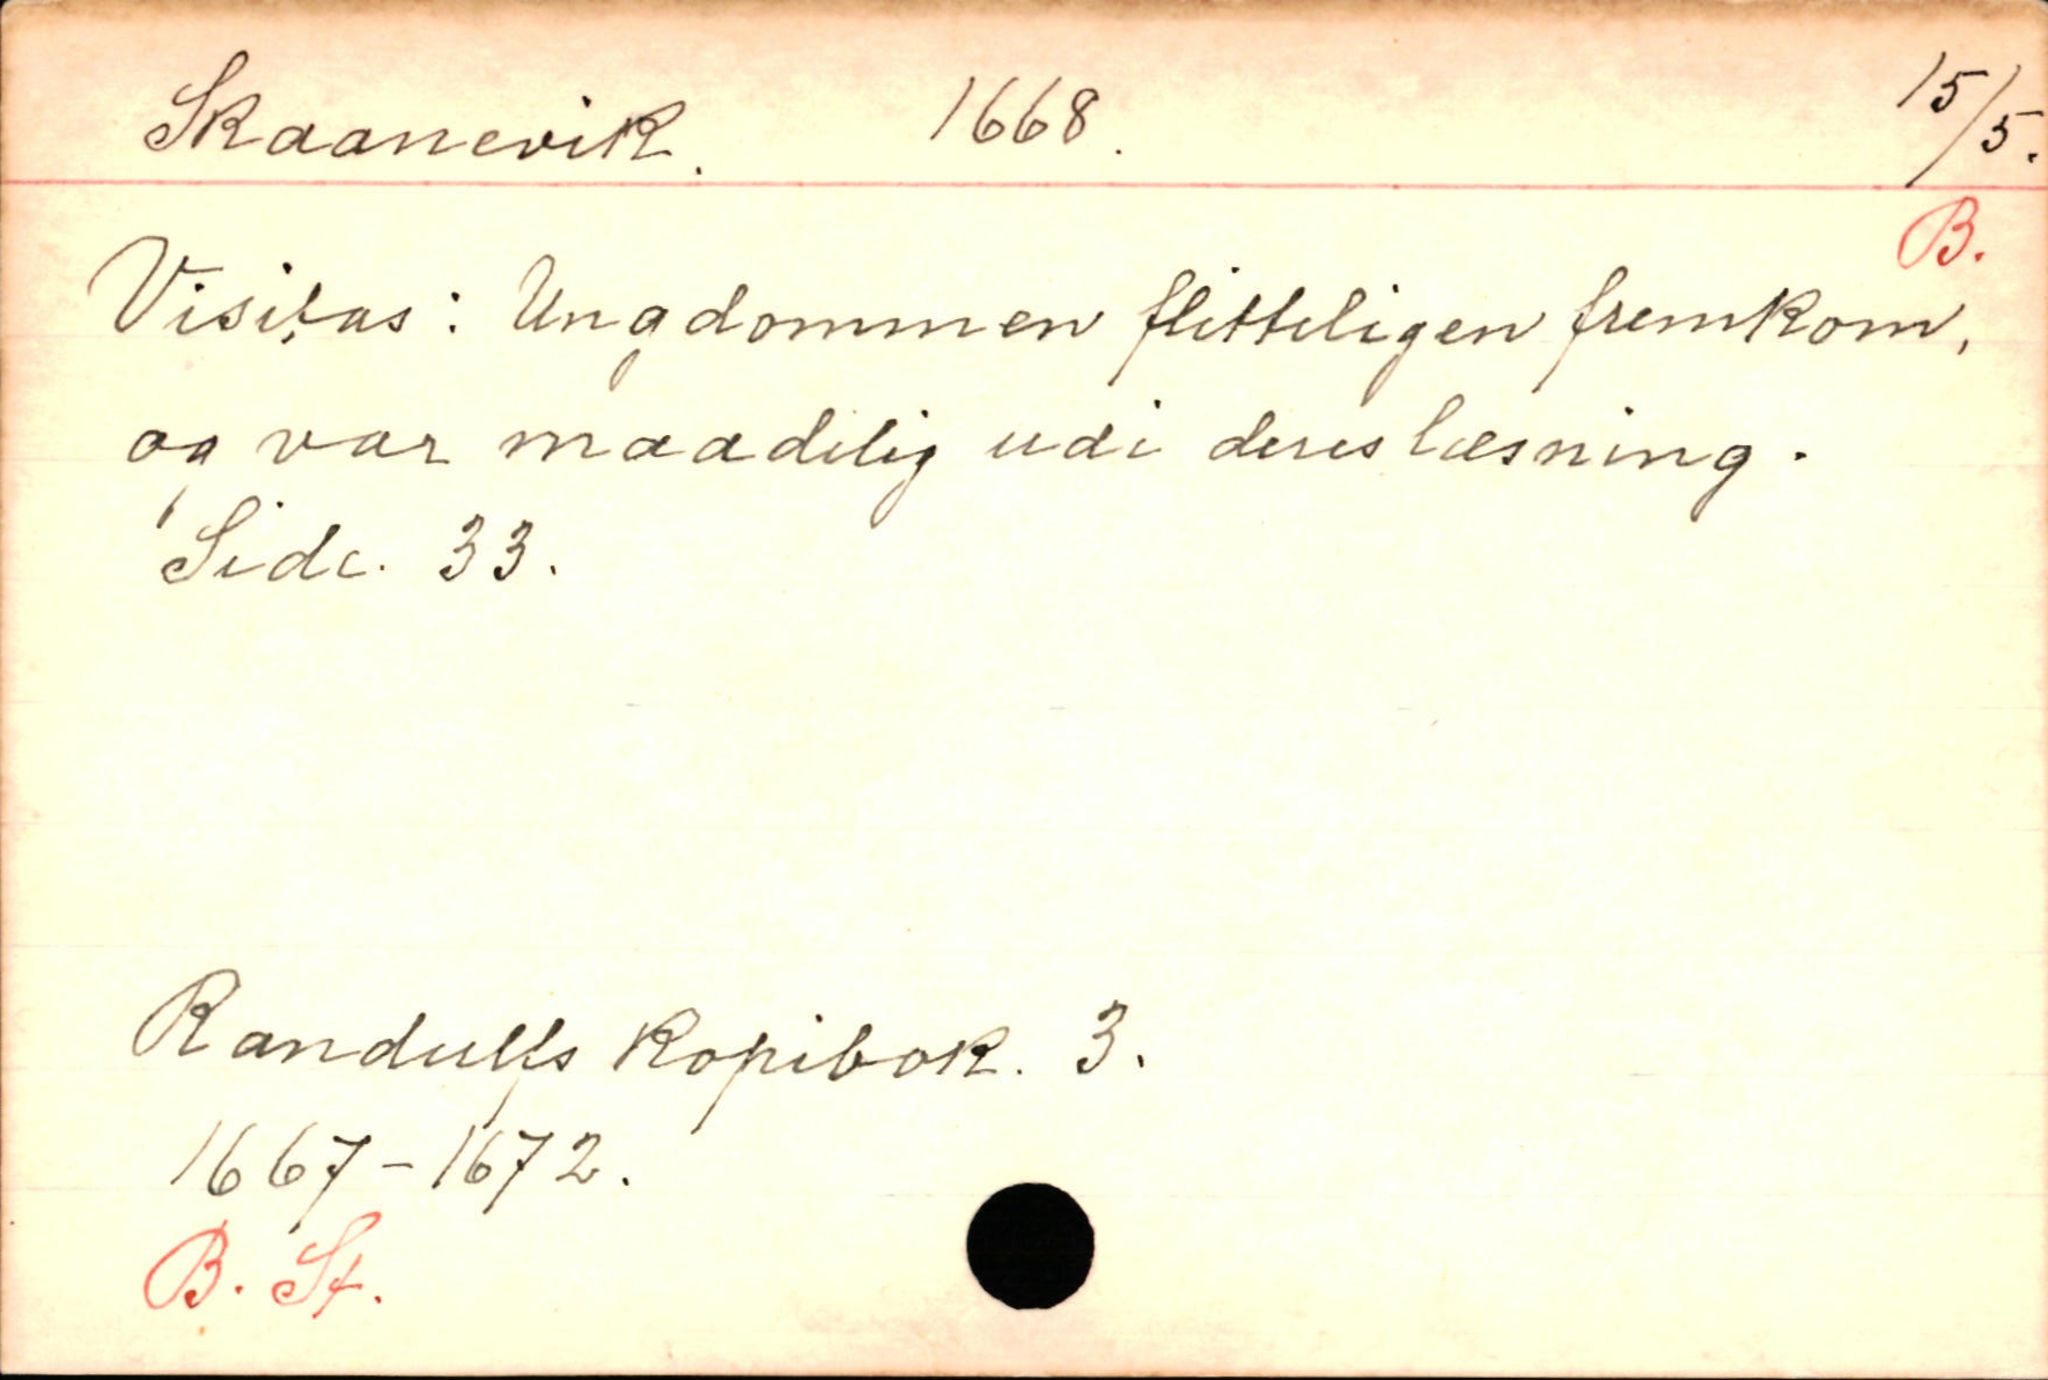 Skaanevik. 1668. 15/5.
B.
Visitas: Ungdommen flitteligen fremkom,
og var maadelig udi deres læsning.
Side. 33.
Randulfs Kopibok. 3.
1667-1672.
B. St.